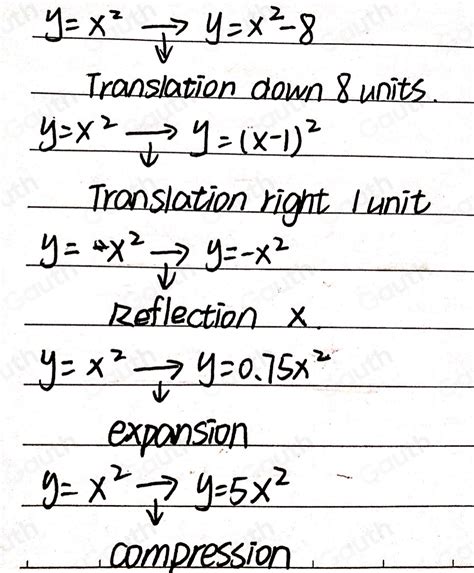 y = x² → y = x² - 8
↓
Translation down 8 units.
y = x² → y = (x-1)²
↓
Translation right 1 unit
y = x² → y = -x²
↓
Reflection x.
y = x² → y = 0.75x²
↓
expansion
y = x² → y = 5x²
↓
compression